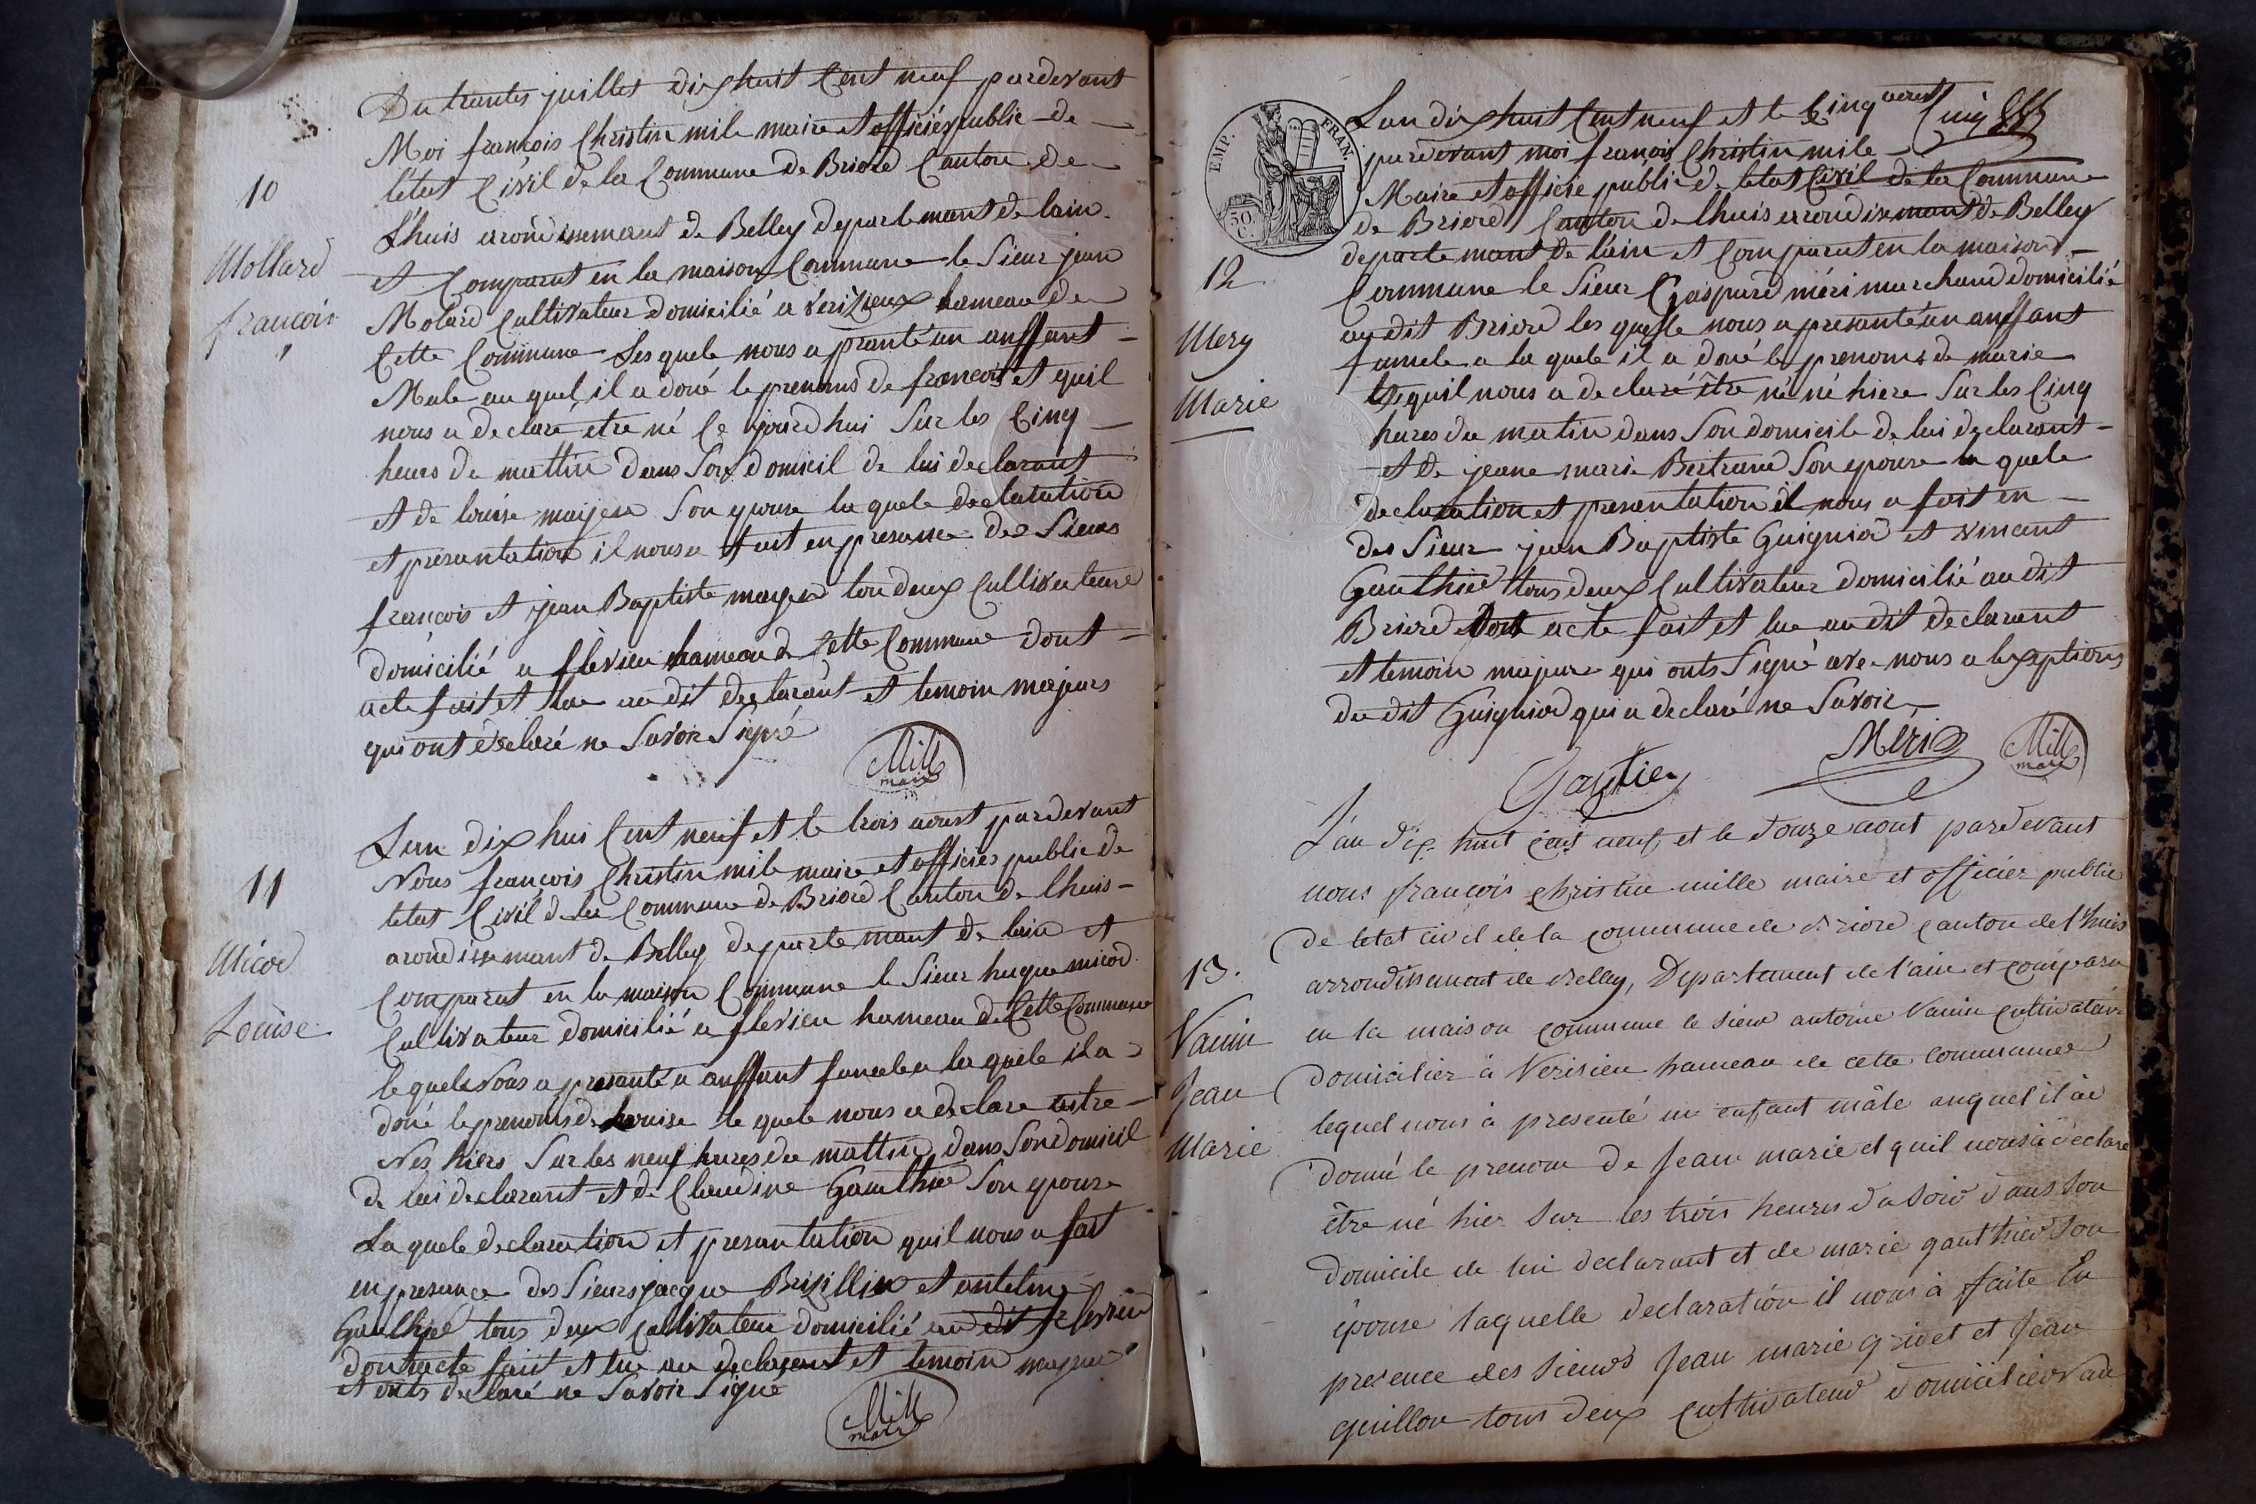 10
Mollard
francois
Du trantes juillet dix huit Cent neuf pardevant
Moi francois Christin mile maire et officiés public de
létat Civil de la Commune de Briord Canton de
Lhuis arondissemant de Belley departemant de lain
et Comparut en la maison Commune le Sieur jean
Molard Cultivateur domicilié a verizieux hameau de
Cette Commune Lesquele nous a pranté un anffant
Male au quel il a doné le prenoms de francois et quil
nous a declaré etre né Ce jourdhui Sur les Cinq
heurs de mattin dans Son domicil de lui declarant
et de louise maijen Son epouse la quele declaration
et presantation il nous a fait en presance des Sieurs
francois et jean Baptiste tou deux Cultivateurs
domicilié a flevieu hameau de Cette Commune dont
acte fait et lue au dit declarant et temoin majeurs
qui ont declaré ne Savoir Signé
Mille
maire
11
Micod
Louise
Lan dix hui Cent neuf et le trois aoust pardevant
Nous francois Christin mile maire et officiés public de
letat Civil de la Commune de Briord Canton de lhuis
arondissemant de Belley departemant de lain et
Comparut en la maison Commune le Sieur hugue micod
Cultivateur domicilié a flevieu hameau de Cette Commune
le quele Nous a presanté a anffant famele a la quele il a
doné le prenoms de Louise le quele nous a declare
Nez hiers Sur les neuf hures du mattin dans Son domicil
de lui declarant et de Claudine Gaulthié Son epouse
La quele declaration et presantation quil nous a fait
en presance des Sieurs jacque Brizillion et antelme
Gaulthié tous deux Cultivateur domicilié au dit flevieu
dont acte fait et lue au declarant et temoin majeur
et onts declaré ne Savoir Signé
Mille
maire
EMP. FRAN.
50. C.
12
Mery
Marie
Lan dix huit Cent neuf et le Cinq aoust
pardevant moi francois Christin mile
Maire et officié public de letat Civil de la Commune
de Briord Canton de lhuis arondisemant de Belley
departemant de lain et Comparut en la maison
Commune le Sieur Gaspard méri marchand domicilié
au dit Briord les quele nous a presanté un anffant
famele a la quele il a doné le prenoms de marie
quil nous a declaré être né hiere Sur les Cinq
hures du matin dans Son domicile de lui declarant
et de jeane marie Bertrand Son epouse la quele
declaration et presentation il nous a fait en
des Sieur jean Baptiste Guigniod et vincent
Gaulthié tous deux Cultivateur domicilié au dit
Briord dont acte fait et lue au dit declarant
et temoin majeur qui onts Signé avec nous a lexaptions
du dit Guigniod qui a declaré ne Savoir
Gautier
Méri
Mille
maire
13.
Vanin
Jean
Marie
L'an dix huit cent neuf et le douze aout pardevant
nous françois christin mille maire et officier public
de letat civil de la commune de Briord canton de l'huis
arrondissement de Belley, Departement de l'ain et comparu
en la maison commune le sieur antoine Vanin cultivateur
domicilier à Verisieu hameau de cette commune
lequel nous à presenté un enfant mâle auquel il à
donné le prenom de Jean marie et quil nous à declaré
être né hier sur les trois heures du soir dans son
domicile de lui declarant et de marie gauthier son
épouse laquelle declaration il nous à faite En
presence des sieurs Jean marie grivet et Jean
guillon tous deux cultivateur domicilier au